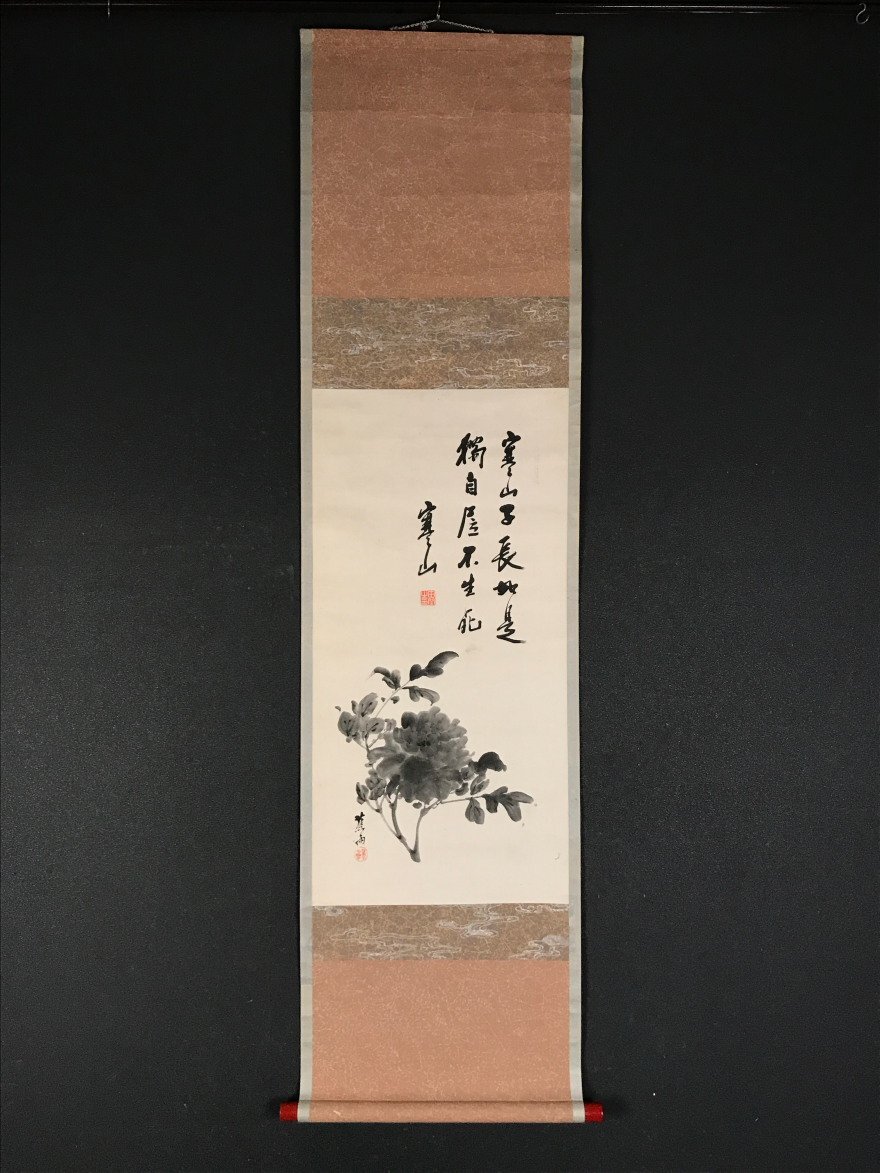 寒山子長如是
獨自居不生死
寒山
蕉雨